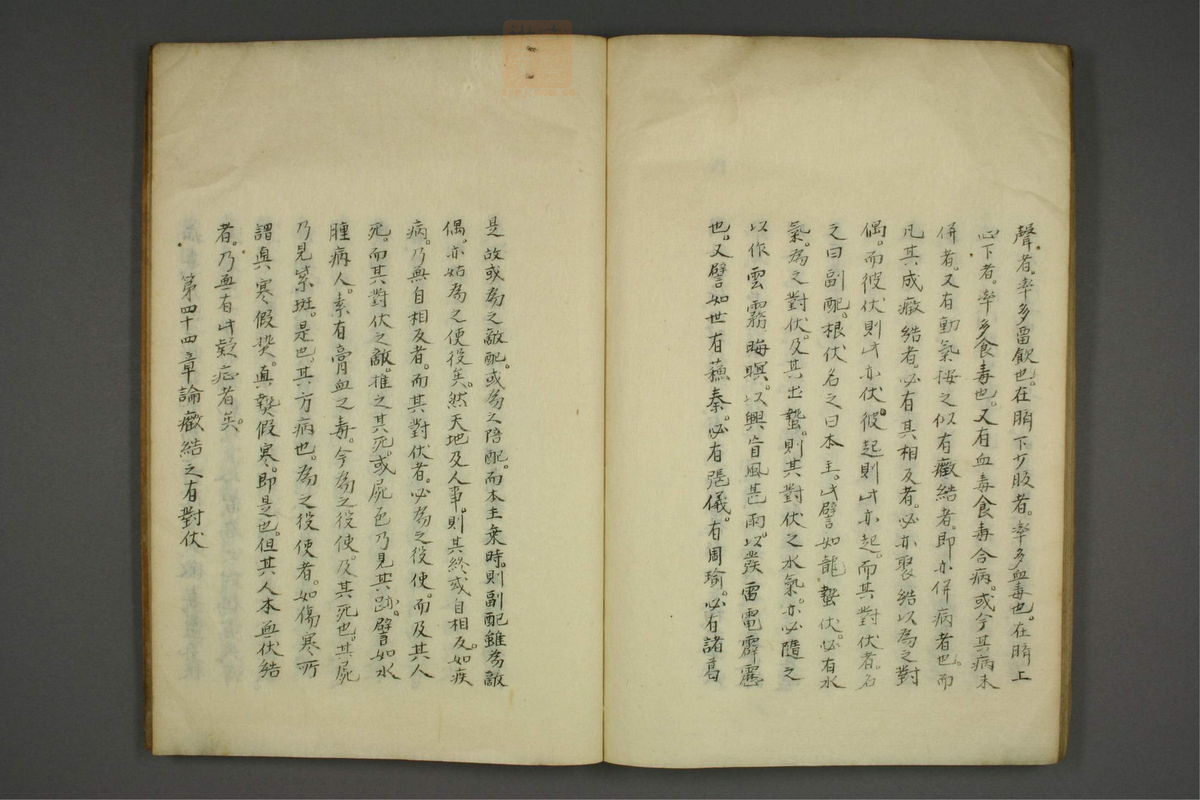 聲者。率多畱飲也。在臍下少腹者。率多血毒也。在臍上
心下者。率多食毒也。又有血毒食毒合病。或今其病未
併者。又有動氣按之似有癥結者。即亦併病者也。而
凡其成癥結者。必有其相反者。必亦聚結以為之對
偶。而彼伏則此亦伏。彼起則此亦起。而其對伏者。名
之曰副配。根伏名之曰本主。此譬如龍蟄伏。必有水
氣。為之對伏。及其出蟄。則其對伏之水氣。亦必隨之
以作雲霧晦暝。以興盲風甚雨。以發雷電霹靂
也。又譬如世有蘓秦。必有張儀。有周瑜。必有諸葛
是故或為之敵配。或為之陪配。而本主乘時。則副配雖為敵
偶。亦姑為之使役矣。然天地及人事。則其終或自相反。如疾
病。乃無自相反者。而其對伏者。必為之役使。而及其人
死。而其對伏之敵。推之其死。或屍色乃見其跡。譬如水
腫病人。素有膏血之毒。今為之役使。及其死也。其屍
乃見紫斑。是也。其方病也。為之役使者。如傷寒所
謂真寒假熱。真熱假寒。即是也。但其人本無伏結
者。乃無有此疑症者矣。
第四十四章論癥結之有對伏